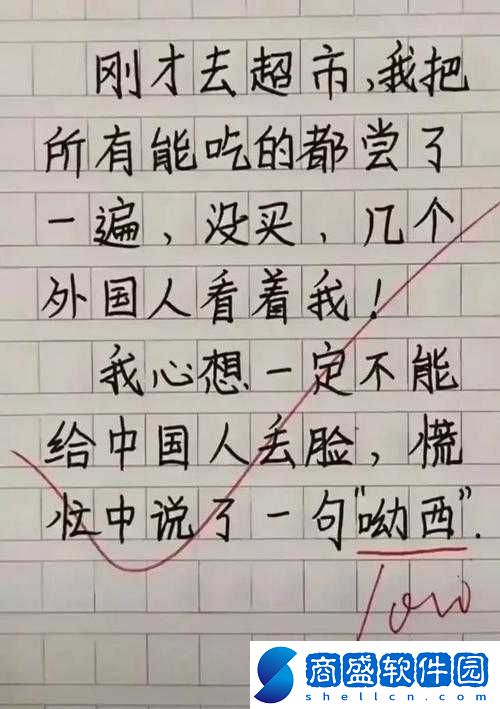 刚才去超市,我把
所有能吃的都尝了
一遍，没买，几个
外国人看着我！
我心想一定不能
给中国人丢脸，慌
忙中说了一句“呦西”.
100
商盛软件园
shellcn.com